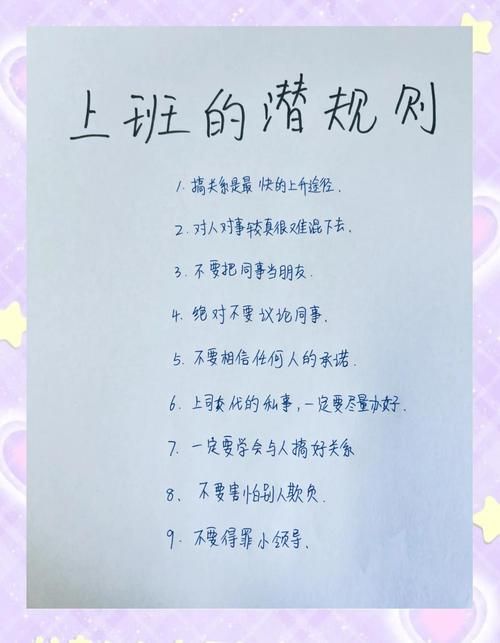 上班的潜规则
1.搞关系是最快的上升途径.
2.对人对事较真很难混下去.
3.不要把同事当朋友.
4.绝对不要议论同事.
5.不要相信任何人的承诺.
6.上司交代的私事,一定要尽量办好.
7.一定要学会与人搞好关系
8、不要害怕别人欺负.
9.不要得罪小领导.